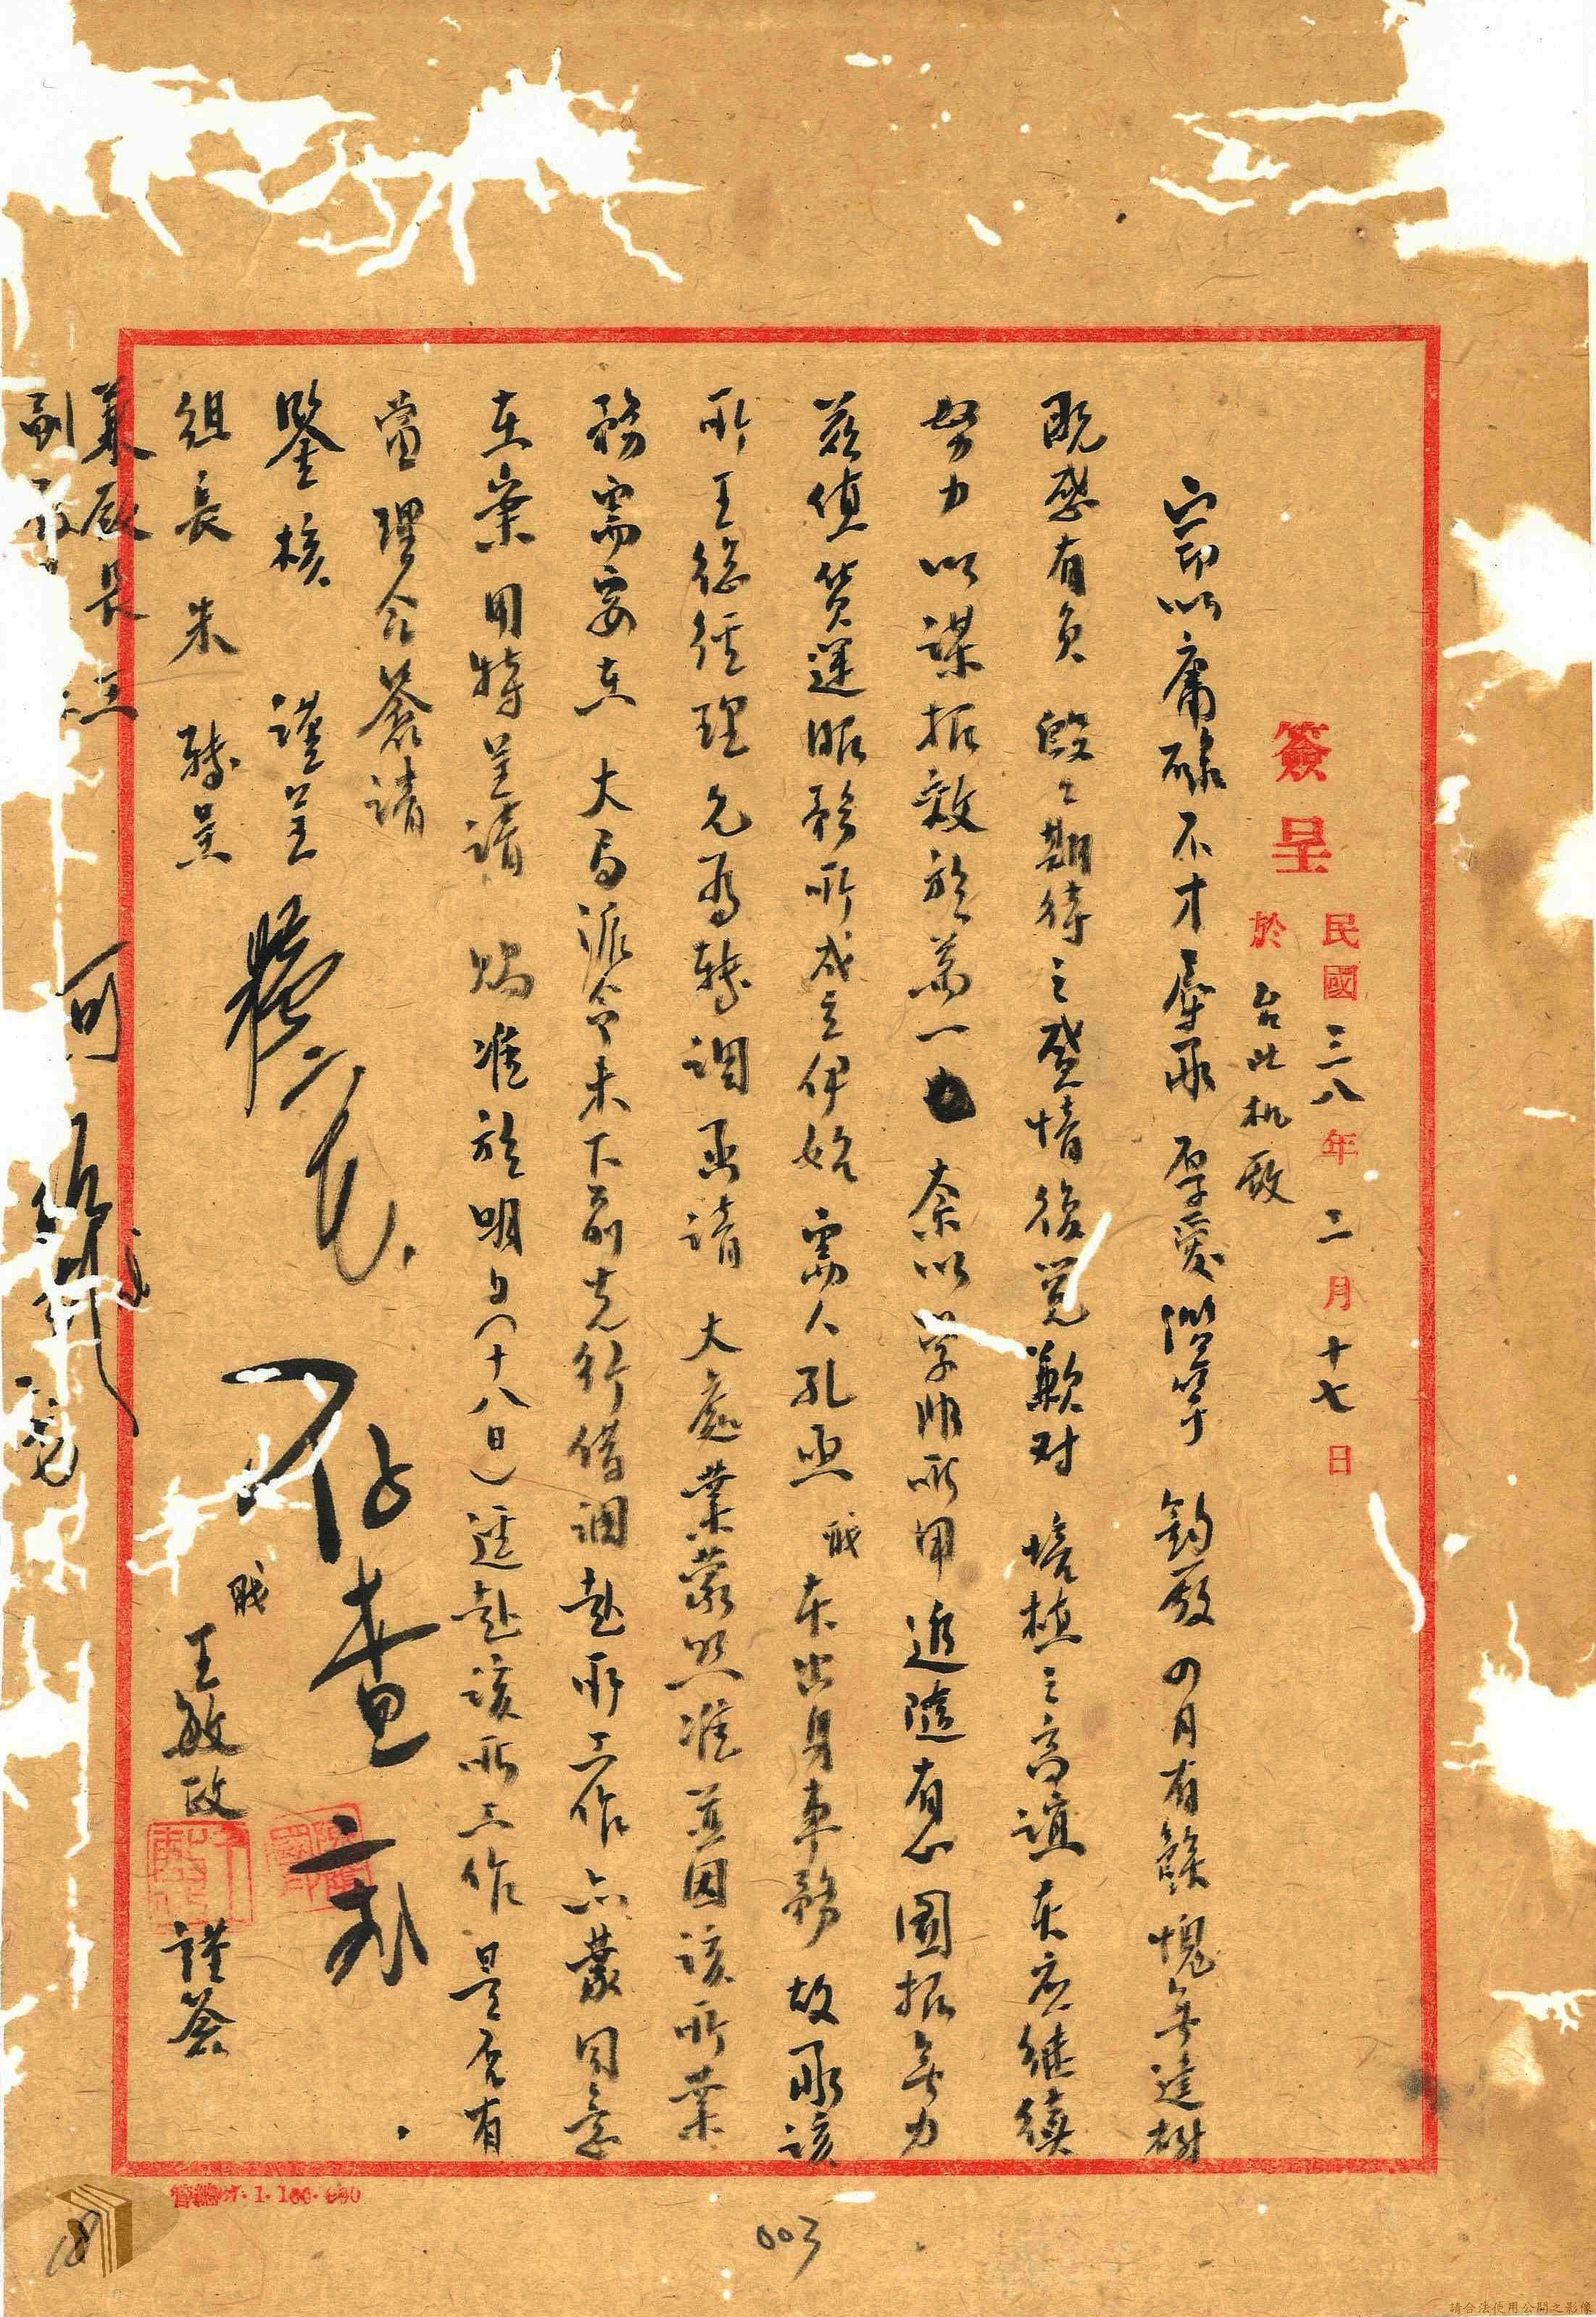 簽呈
民國三八年二月十七日
於台北机廠
竊以庸碌不才辱承 厚愛濫竽 鈞廠四月有餘愧無建樹
既感有負 殷殷期待之盛情後覺歉对 培植之高誼本应继續
努力以謀报效於萬一 奈以学非所用 追隨有心 圖报無力
兹值貨運服務所成立伊始 需人孔亟 職本出身車務 故承該
所王總經理允為轉調函請 大處業蒙照准並因該所業
務需要在 大局派令未下前先行借調赴所工作亦蒙同意
在案用特呈請 賜准於明日(十八日)逕赴該所工作是否有
當理合簽請
鑒核 謹呈
組長朱 轉呈
兼廠長
副
可
職 王敏政 謹簽
1·100·000
003
請合法使用公開之影像